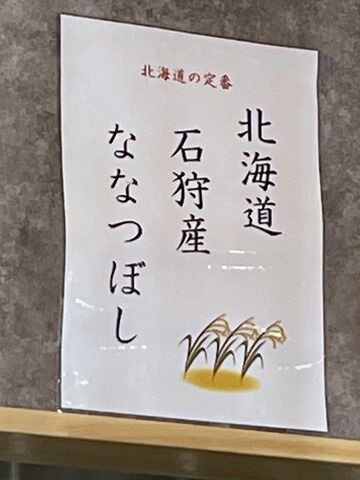 北海道の定番
北海道
石狩産
ななつぼし